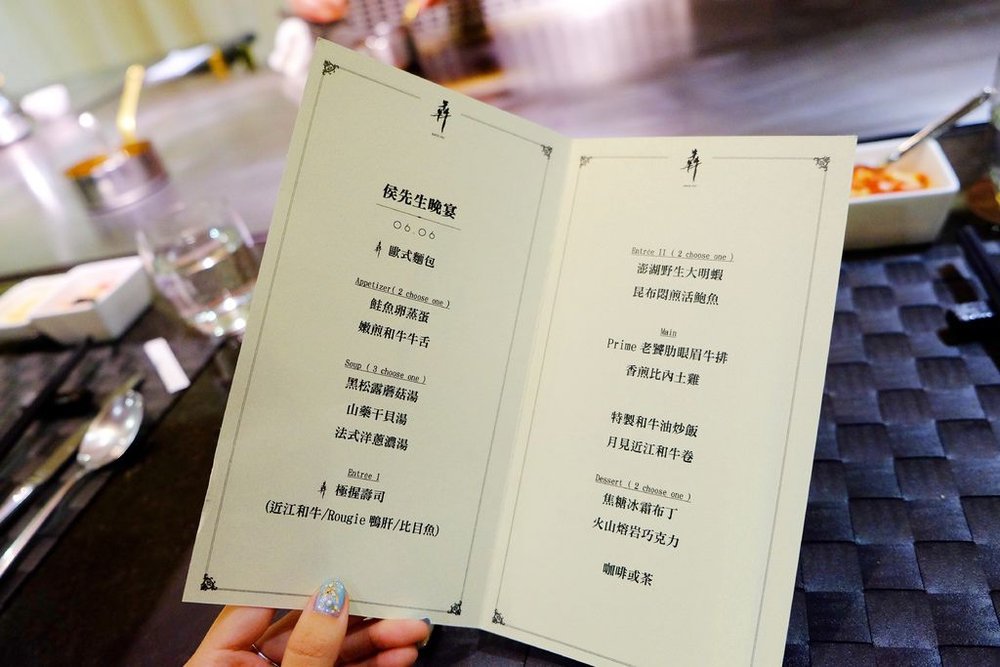 侯先生晚宴
06.06
犇 歐式麵包
Appetizer( 2 choose one )
鮭魚卵蒸蛋
嫩煎和牛牛舌
Soup ( 3 choose one )
黑松露蘑菇湯
山藥干貝湯
法式洋蔥濃湯
Entrée I
犇 極握壽司
(近江和牛/Rougie 鴨肝/比目魚)
犇
Entrée II ( 2 choose one )
澎湖野生大明蝦
昆布悶煎活鮑魚
Main
Prime 老饕肋眼眉牛排
香煎比內土雞
特製和牛油炒飯
月見近江和牛卷
Dessert ( 2 choose one )
焦糖冰霜布丁
火山熔岩巧克力
咖啡或茶